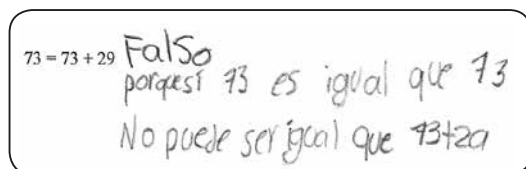 73 = 73 + 29 Falso
porquesi 73 es igual que 73
No puede ser igual que 73+29